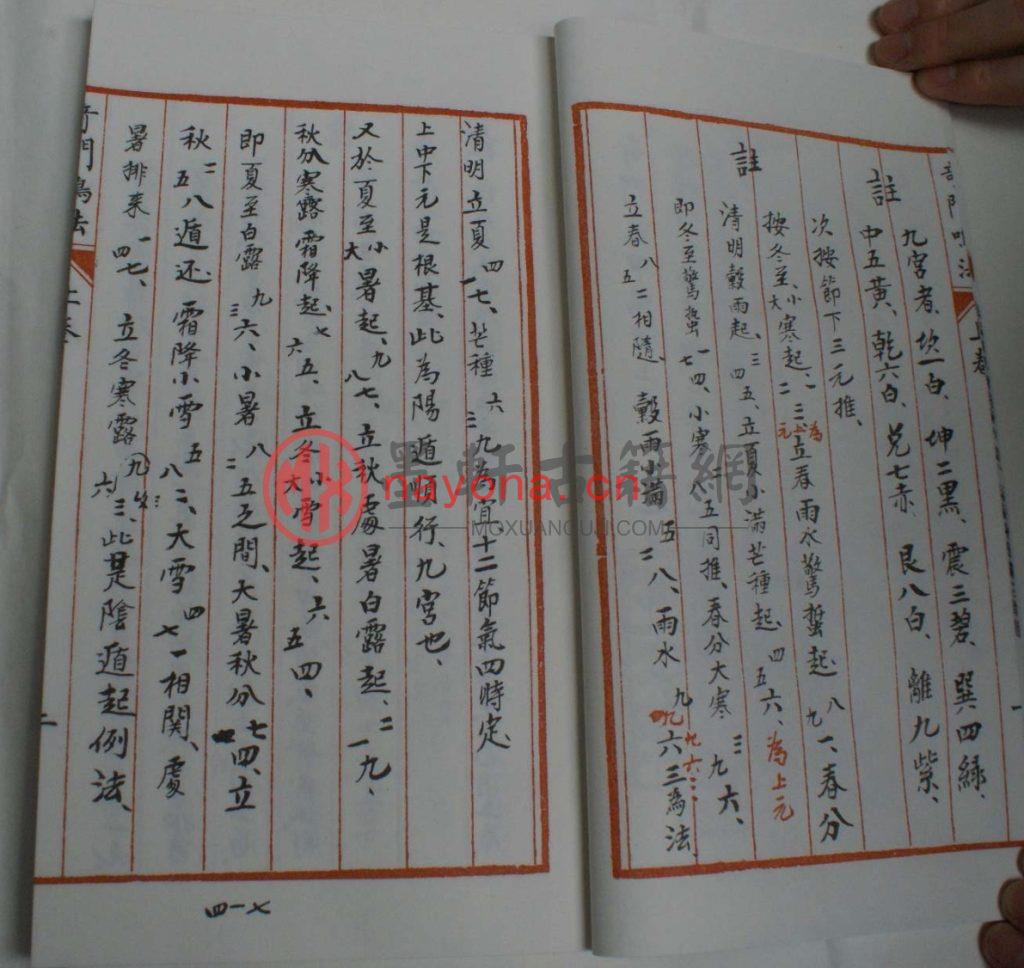 上卷
九宮者、坎一白、坤二黑、震三碧、巽四綠、
註 中五黃、乾六白、兌七赤、艮八白、離九紫、
次按節下三元推、
註 按冬至、小大寒起、一二三、為上元 立春雨水驚蟄起 八九一、春分
清明穀雨起、三四五、立夏小滿芒種起、四五六、為上元
即冬至驚蟄 一七四、小寒 二八五同推、春分大寒 三九六、
立春 八五二相隨、穀雨小滿 五二八、雨水 九六三為法、
九六三
清明立夏 四一七、芒種 六三九為宜十二節氣四時定
上中下元是根基、此為陽遁順行、九宮也、
又於夏至小大暑起、九八七、立秋處暑白露起、二一九、
秋分寒露霜降起、七六五、立冬小大雪起、六五四、
即夏至白露 九三六、小暑 八二五之間、大暑秋分 七一四、立
秋 二五八遁还 霜降小雪 五八二、大雪 四七一相関、處
暑排來 一四七、立冬寒露 六九三、此是陰遁起例法、
奇門鳴法
上卷
二
四一七
墨軒古籍網
nayona.cn
MOXUANGUJI.COM